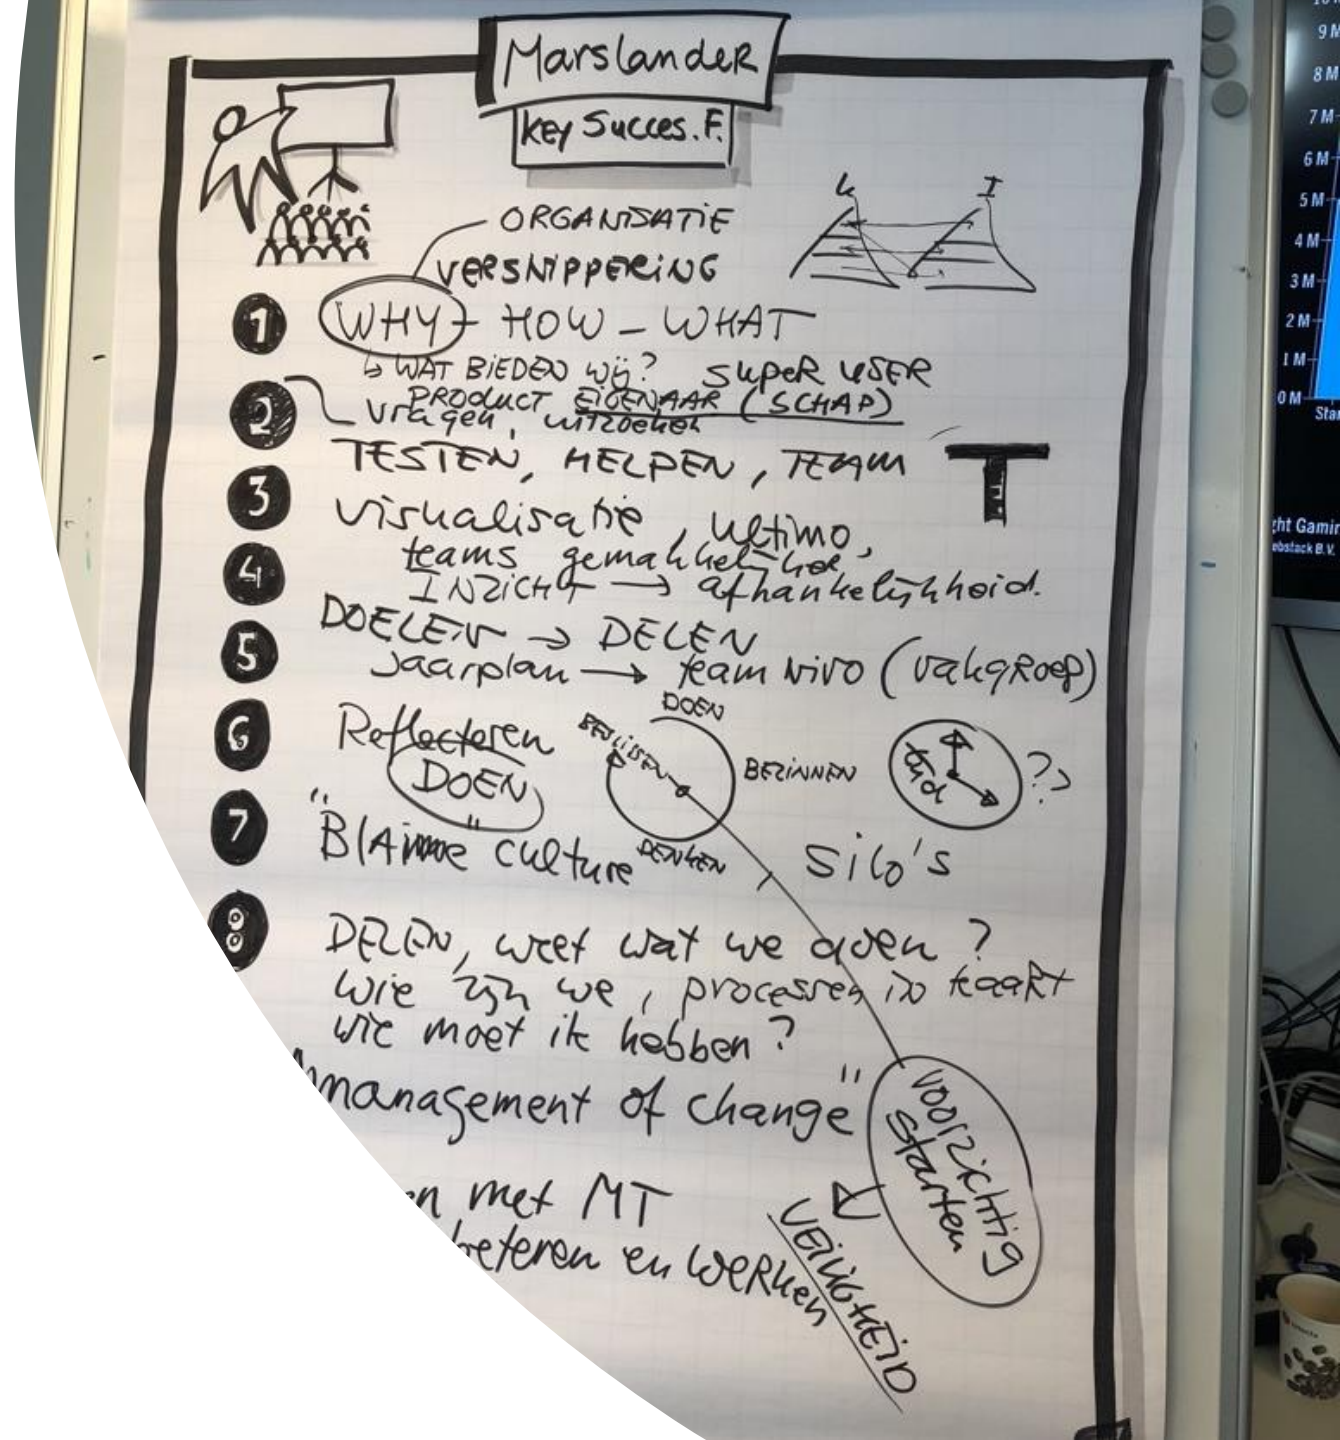 MarslandeR
Key Succes. F.
ORGANISATIE
VERSNIPPERING
1 WHY - HOW - WHAT
↳ WAT BIEDEN wij? SUPER USER
PRODUCT EIGENAAR (SCHAP)
2 vragen, uitzoeken
TESTEN, HELPEN, TEAM
T
3 visualisatie, ultimo,
teams gemakkelijker
4 INZICHT → afhankelijkheid.
DOELEN → DELEN
5 Jaarplan → team NIVO (vakgRoep)
6 Reflecteren
DOEN
DOEN
BESLISSEN
BEZINNEN
DENKEN
tijd ??
7 "BlAme" culture
silo's
8 DELEN, weet wat we doen?
wie zijn we, processen in kaaRt
wie moet ik hebben?
management of change"
voorzichtig
starten
VEILIGHEID
met MT
beteren en weRken
9 M
8 M
7 M
6 M
5 M
4 M
3 M
2 M
1 M
0 M
Star
ght Gamin
ebstack B.V.